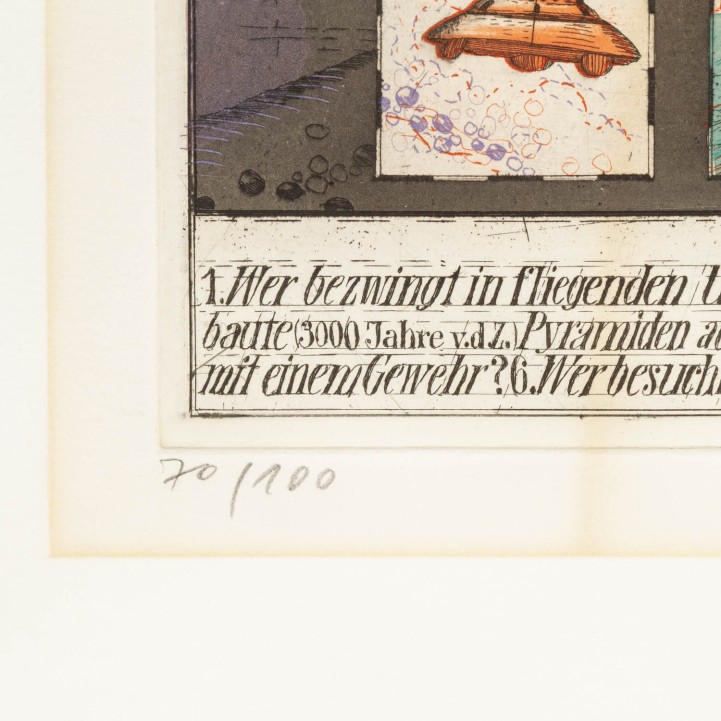 1. Wer bezwingt in fliegenden
baute (3000 Jahre v.d.Z.) Pyramiden
mit einem Gewehr? 6. Wer besuch
70/100